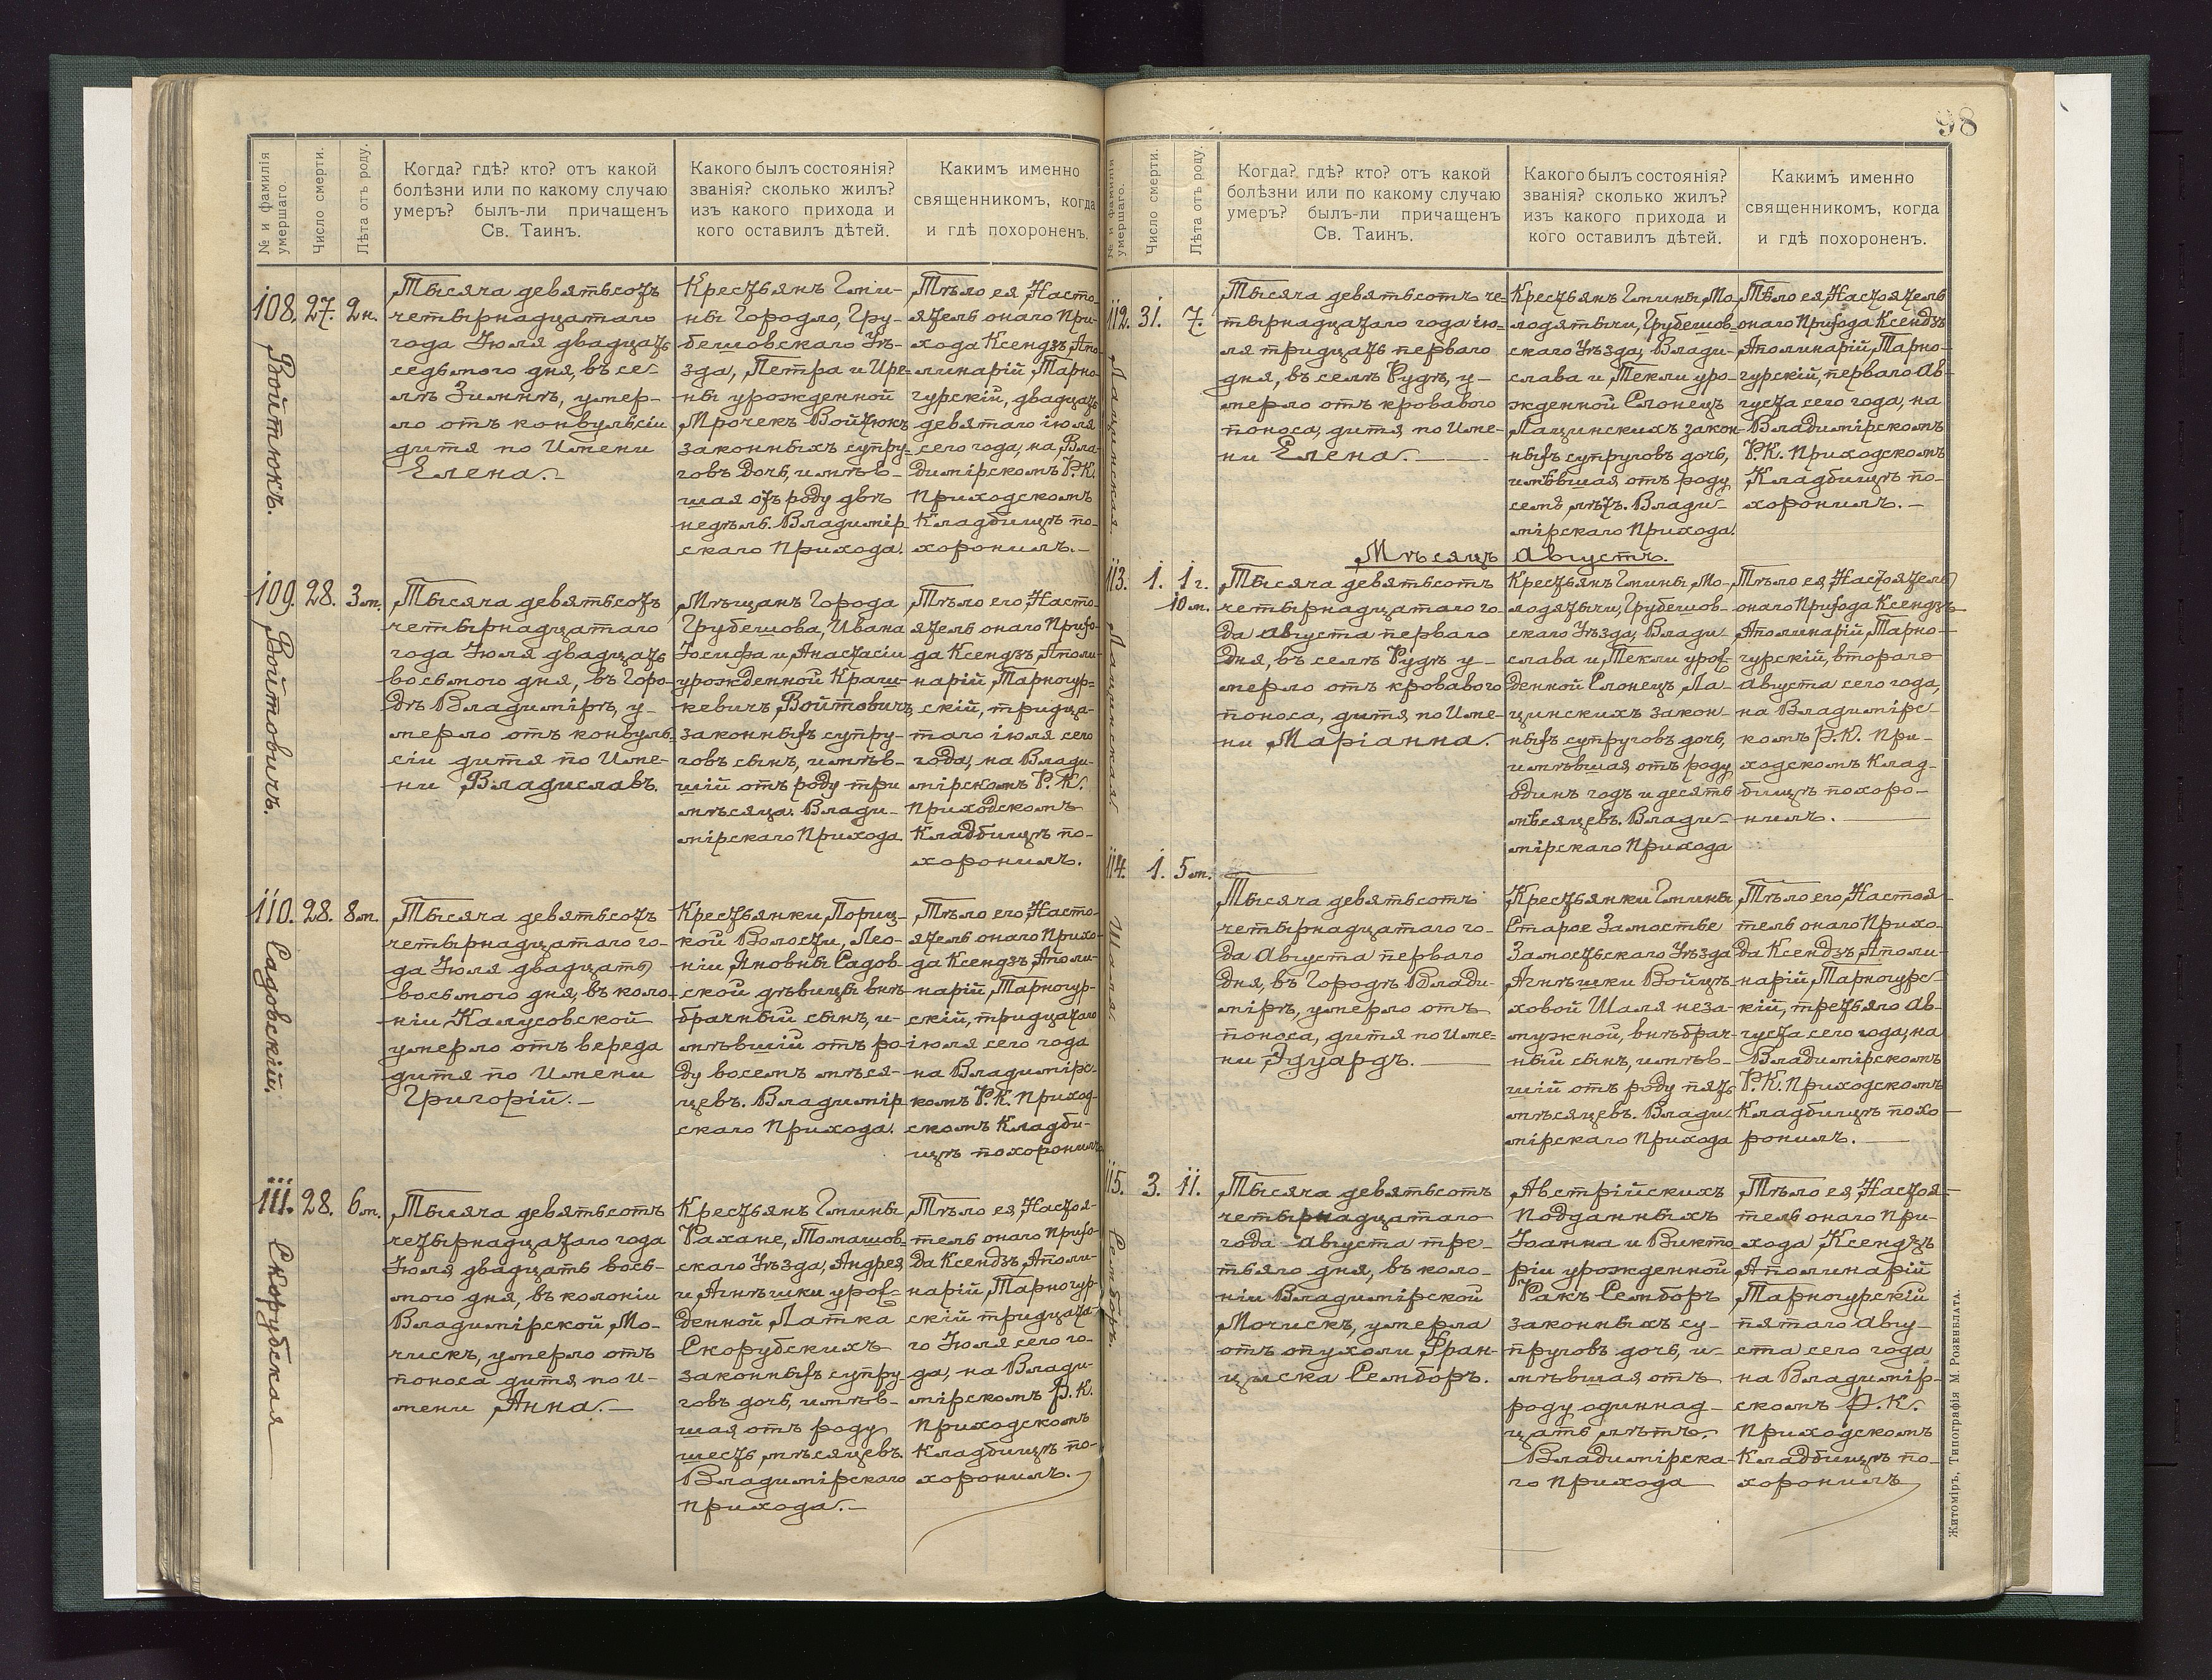 98
№ и фамилія умершаго.
Число смерти.
Лѣта отъ роду.
Когда? гдѣ? кто? отъ какой
болѣзни или по какому случаю
умеръ? былъ-ли причащенъ
Св. Таинъ.
Какого былъ состоянія?
званія? сколько жилъ?
изъ какого прихода и
кого оставилъ дѣтей.
Какимъ именно
священникомъ, когда
и гдѣ похороненъ.
108. 27. 2н.
Войтюкъ.
Тысяча девятьсотъ
четырнадцатаго
года Іюля двадцать
седьмого дня, въ се-
лѣ Зимнѣ, умер-
ло отъ конвульсіи
дитя по имени
Елена.-
Крестьянъ Гми-
ны Городло, Гру-
бешовскаго Уѣ-
зда, Петра и Ире-
ны урожденной
Мрочекъ Войтюкъ
законныхъ супру-
говъ дочь, имѣв-
шая отъ роду двѣ
недѣли. Владимір-
скаго Прихода.
Тѣло ея, Насто-
ятель онаго При-
хода Ксендзъ Апо-
линарій Тарно-
гурскій, двадцать
девятаго іюля
сего года, на Вла-
димірскомъ Р.К.
Приходскомъ
Кладбищѣ по-
хоронилъ.-
109. 28. 3м.
Войтовичъ.
Тысяча девятьсотъ
четырнадцатаго
года Іюля двадцать
восьмого дня, въ Горо-
дѣ Владимірѣ, у-
мерло отъ конвуль-
сіи дитя по Име-
ни Владиславъ.
Мѣщанъ Города
Грубешова, Ивана
Іосифа и Анастасіи
урожденной Краш-
кевичъ, Войтовичъ
законныхъ супру-
говъ сынъ, имѣв-
шій отъ роду три
мѣсяца. Влади-
мірскаго Прихода
Тѣло его, Насто-
ятель онаго Прихо-
да Ксендзъ Аполи-
нарій Тарногур-
скій, тридца-
таго іюля сего
года, на Влади-
мірскомъ Р.К.
Приходскомъ
Кладбищѣ по-
хоронилъ.
110. 28. 8м.
Садовскій.
Тысяча девятьсотъ
четырнадцатаго го-
да Іюля двадцать
восьмого дня, въ коло-
ніи Калусовской
умерло отъ вереда
дитя по имени
Григорій.-
Крестьянки Пориц-
кой Волости, Лео-
ніи Яновны Садов-
ской дѣвицы внѣ-
брачный сынъ, и-
мѣвшій отъ ро-
ду восемь мѣся-
цевъ. Владимір
скаго Прихода.
Тѣло его, Насто-
ятель онаго Прихо-
да Ксендзъ Аполи-
нарій Тарногур-
скій, тридцатаго
іюля сего года
на Владимірс-
комъ Р.К. Приход-
скомъ Кладби-
щѣ похоронилъ
111. 28. 6м.
Скорубская
Тысяча девятьсотъ
четырнадцатаго года
Іюля двадцать вось-
мого дня, въ колоніи
Владимірской, Мо-
чискъ, умерло отъ
поноса дитя по и-
мени Анна.-
Крестьянъ Гмины
Рахане, Томашов-
скаго Уѣзда, Андрея
и Агнѣшки урож-
денной Латка
Скорубскихъ
законныхъ супру-
говъ дочь, имѣв-
шая отъ роду
шесть мѣсяцевъ.
Владимірскаго
Прихода.-
Тѣло ея, Настоя-
тель онаго Прихо-
да Ксендзъ Аполи-
нарій Тарногур-
скій тридцата-
го Іюля сего го-
да, на Влади-
мірскомъ Р.К.
Приходскомъ
Кладбищѣ по-
хоронилъ.
№ и фамилія умершаго.
Число смерти.
Лѣта отъ роду.
Когда? гдѣ? кто? отъ какой
болѣзни или по какому случаю
умеръ? былъ-ли причащенъ
Св. Таинъ.
Какого былъ состоянія?
званія? сколько жилъ?
изъ какого прихода и
кого оставилъ дѣтей.
Какимъ именно
священникомъ, когда
и гдѣ похороненъ.
112. 31. 7.
Лацинская.
Тысяча девятьсотъ че-
тырнадцатаго года ію-
ля тридцать перваго
дня, въ селѣ Рудѣ, у-
мерло отъ кроваваго
поноса, дитя по име-
ни Елена.
Крестьянъ Гмины, Мо-
лодятычи, Грубешов-
скаго Уѣзда, Влади-
слава и Текли уро-
жденной Слонецъ
Лацинскихъ закон-
ныхъ супруговъ дочь,
имѣвшая отъ роду
семь лѣтъ. Влади-
мірскаго Прихода.
Тѣло ея, Настоятель
онаго Прихода Ксендзъ
Аполинарій Тарно-
гурскій, перваго Ав-
густа сего года, на
Владимірскомъ
Р.К. Приходскомъ
Кладбищѣ по-
хоронилъ.-
Мѣсяцъ Августъ.
113. 1. 1г. 10м.
Лацинская
Тысяча девятьсотъ
четырнадцатаго го-
да августа перваго
дня, въ селѣ Рудѣ у-
мерло отъ кроваваго
поноса, дитя, по Име-
ни Маріанна.
Крестьянъ Гмины, Мо-
лодятычи, Грубешов-
скаго Уѣзда, Влади
слава и Текли урож-
денной Слонецъ, Ла-
цинскихъ закон-
ныхъ супруговъ дочь,
имѣвшая, отъ роду
одинъ годъ и десять
мѣсяцевъ. Влади-
мірскаго Прихода
Тѣло ея, Настоятель
онаго Прихода Ксендзъ
Аполинарій Тарно-
гурскій, второго
августа сего года,
на Владимірс-
комъ Р.К. При-
ходскомъ Клад-
бищѣ похоро-
нилъ.
114. 1. 5м.
Шаля.
Тысяча девятьсотъ
четырнадцатаго го-
да августа перваго
дня, въ Городѣ Влади-
мірѣ, умерло отъ
поноса, дитя по Име-
ни Эдуардъ.
Крестьянки Гмины
Старое Замостье
Замостьскаго Уѣзда
Агнѣшки Войцѣ-
ховой Шаля неза-
мужной, внѣбрач-
ный сынъ, имѣв-
шій отъ роду пять
мѣсяцевъ. Влади
мірскаго Прихода
Тѣло его, Настоя-
тель онаго Прихо-
да Ксендзъ, Аполи-
нарій Тарногурс-
кій, третьяго Ав-
густа сего года, на
Владимірскомъ
Р.К. Приходскомъ
Кладбищѣ похо-
ронилъ.
115. 3. 11.
Семборъ.
Тысяча девятьсотъ
четырнадцатаго
года августа тре-
тьяго дня, въ коло-
ніи Владимірской
Мочискъ, умерла
отъ опухоли, Фран-
циска Семборъ.
Австрійскихъ
подданныхъ
Іоанна и Викто
ріи урожденной
Ракъ Семборъ
законныхъ су-
пруговъ дочь, и-
мѣвшая, отъ
роду одиннад-
цать лѣтъ.
Владимірска-
го Прихода
Тѣло ея, Настоя-
тель онаго При-
хода Ксендзъ
Аполинарій
Тарногурскій
пятаго Авгу-
ста сего года
на Владимір-
скомъ Р.К.
Приходскомъ
Кладбищѣ по-
хоронилъ
Житоміръ, Типографія М. Розенблата.